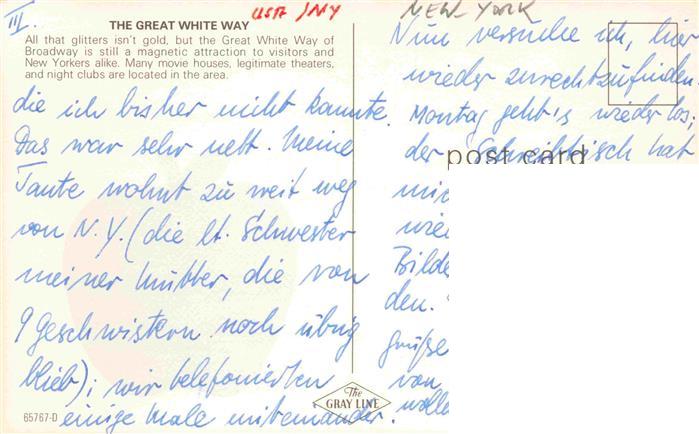 III
USA / NY
NEW-YORK
THE GREAT WHITE WAY
All that glitters isn't gold, but the Great White Way of
Broadway is still a magnetic attraction to visitors and
New Yorkers alike. Many movie houses, legitimate theaters,
and night clubs are located in the area.
die ich bisher nicht kannte.
Das war sehr nett. Meine
Tante wohnt zu weit weg
von N.Y. (die lt. Schwester
meiner Mutter, die von
9 Geschwistern noch übrig
blieb); wir telefonierten
einige Male miteinander.
65767-D
The
GRAY LINE
Nun versuche ich, hier
wieder zurechtzufinden.
Montag geht's wieder los;
der Schreibtisch hat
post card
mir
wie
Bilde
den.
große
von
wolle